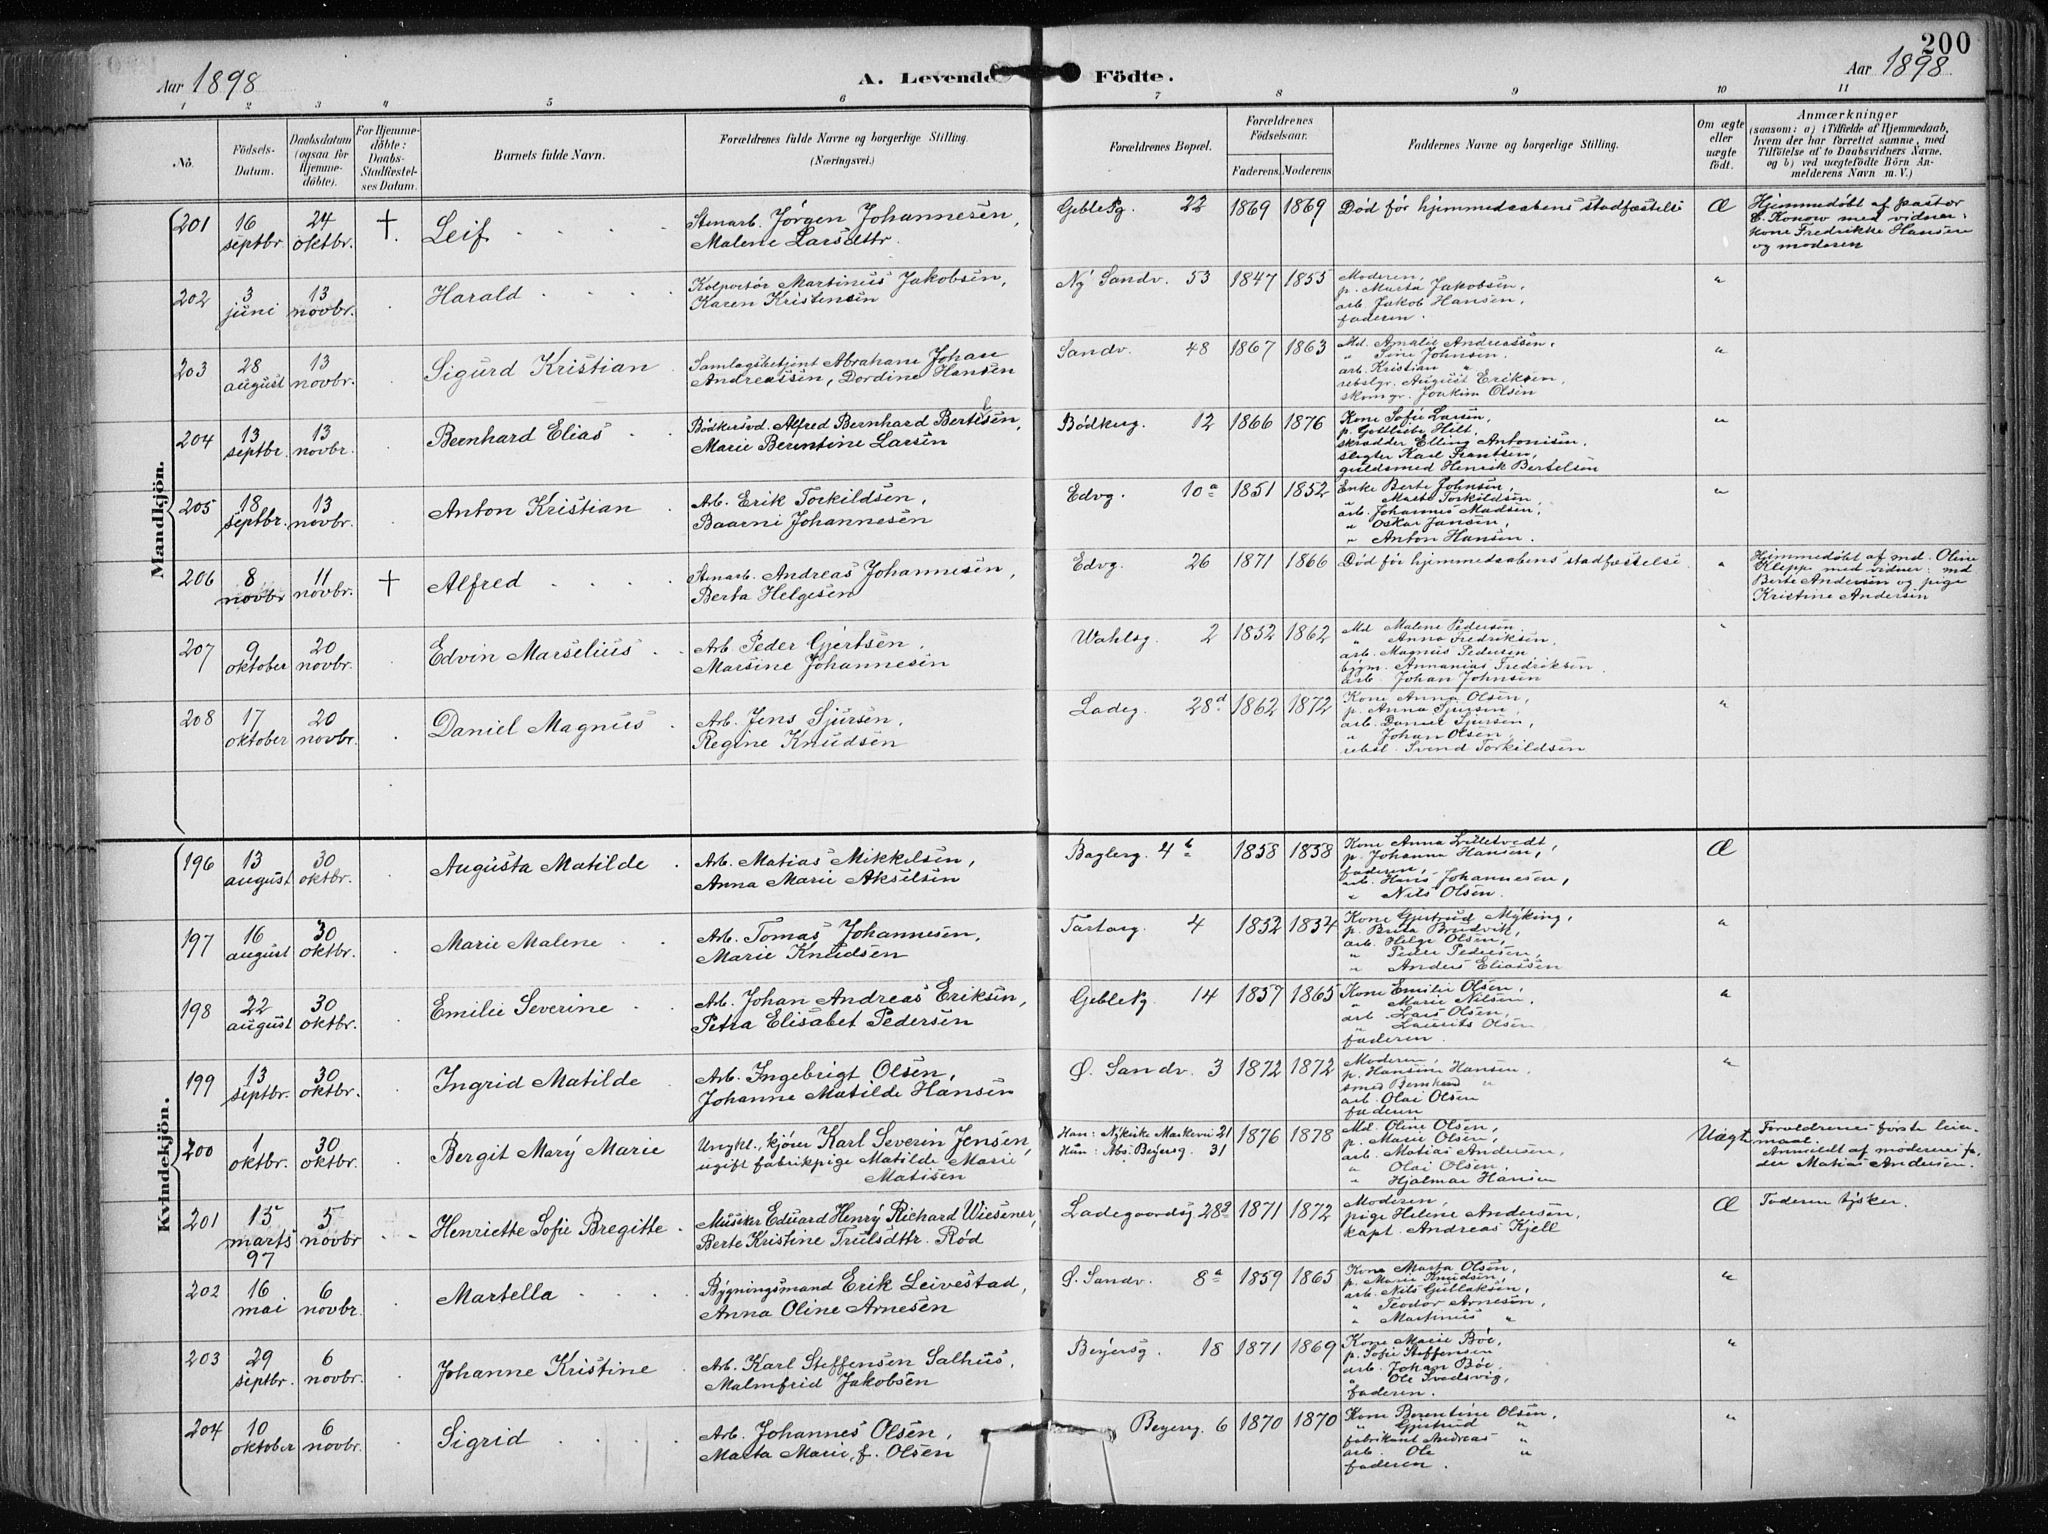 200
Aar 1898 A. Levende Födte. Aar 1898
1 2 3 4 5 6 7 8 9 10 11
No. Födsels-Datum. Daabsdatum (ogsaa for Hjemme-döbte). For Hjemme-döbte: Daabs-Stadfæstel-ses Datum. Barnets fulde Navn. Forældrenes fulde Navne og borgerlige Stilling. (Næringsvei.) Forældrenes Bopæl. Forældrenes Födselsaar. Faderens. Moderens. Faddernes Navne og borgerlige Stilling. Om ægte eller uægte födt. Anmærkninger (saasom: a) i Tilfælde af Hjemmedaab, hvem der har forrettet samme, med Tilföielse af to Daabsvidners Navne, og b) ved uægtefödte Börn An-melderens Navn m. V.)
Mandkjön.
201 16 septbr. 24 oktbr. † Leif Stenarb. Jørgen Johannesen, Geblesg. 22 1869 1869 Død før hjemmedaabens stadfæstelse Æ Hjemmedøbt af pastor
Malene Larsdttr. C. Konow med vidner:
kone Fredrikke Hansen
og moderen
202 3 juni 13 novbr. Harald Kolportør Martinus Jakobsen, Ny Sandv. 53 1847 1855 Moderen, "
Karen Kristensen p. Marta Jakobsen,
arb. Jakob Hansen,
faderen.
203 28 august 13 novbr. Sigurd Kristian Samlagsbetjent Abraham Johan Sandv. 48 1867 1863 Md. Amalie Andreassen, "
Andreassen, Dordine Hansen " Sine Johnsen.
arb. Kristian "
rebslgr. August Eriksen,
skomgr. Joakim Olsen
204 13 septbr. 13 novbr. Bernhard Elias Bödkersvd. Alfred Bernhard Bertelsen, Bödkerg. 12 1866 1876 Kone Sofie Larsen, "
Marie Berentine Larsen p. Gottliebe Hilt,
skrædder Elling Antonisen,
slagter Karl Frantsen,
guldsmed Henrik Bertelsen
205 18 septbr. 13 novbr. Anton Kristian Arb. Erik Torkildsen, Edvg. 10a 1851 1852 Enke Berte Johnsen, "
Baarni Johannesen " Marta Torkildsen
arb. Johannes Madsen,
" Oskar Jansen,
" Anton Hansen.
206 8 novbr 11 novbr. † Alfred Stenarb. Andreas Johannesen, Edvg. 26 1871 1866 Død før hjemmedaabens stadfæstelse. " Hjemmedøbt af md. Oline
Berta Helgesen Kleppe med vidner: md
Berte Andersen og pige
Kristine Andersen
207 9 oktober 20 novbr. Edvin Marselius Arb. Peder Gjertsen, Wahlsg. 2 1852 1862 Md Malene Pedersen "
Marsine Johannesen " Anna Fredriksen,
arb. Magnus Pedersen
bygm. Annanias Fredriksen
arb. Johan Johnsen
208 17 oktober 20 novbr. Daniel Magnus Arb. Jens Sjursen, Ladeg. 28d 1862 1872 Kone Anna Olsen, "
Regine Knudsen p. Anna Sjursen
arb. Daniel Sjursen,
" Johan Olsen,
rebsl. Svend Torkildsen
Kvindekjön.
196 13 august 30 oktbr. Augusta Matilde Arb. Matias Mikkelsen, Baglerg. 4b 1858 1858 Kone Anna Lilletvedt Æ
Anna Marie Akselsen p. Johanna Hansen,
faderen,
arb. Hans Johannesen,
" Nils Olsen.
197 16 august 30 oktbr. Marie Malene Arb. Tomas Johannesen, Tartarg. 4 1852 1854 Kone Gjertrud Myking, "
Marie Knudsen p. Brita Brudvik,
arb. Helge Olsen,
" Peder Pedersen,
" Anders Eliassen
198 22 august 30 oktbr. Emilie Severine Arb. Johan Andreas Eriksen, Geblesg. 14 1857 1865 Kone Emilie Olsen, "
Petra Elisabet Pedersen " Marie Nilsen,
arb. Lars Olsen,
" Laurits Olsen
faderen.
199 13 septbr. 30 oktbr. Ingrid Matilde Arb. Ingebrigt Olsen, Ø. Sandv. 3 1872 1872 Moderen, "
Johanne Matilde Hansen p. Hansine Hansen,
smed Bernhard "
arb. Olai Olsen
faderen
200 1 oktbr. 30 oktbr. Bergit Mary Marie Ungkl., kjører Karl Severin Jensen, Han: Nykirke Markevei 21 1876 1878 Md. Oline Olsen, Uægte Forældrenes første leier-
ugift fabrikpige Matilde Marie Hun: Abs. Beyersg. 31 p. Marie Olsen, maal.
Matisen arb. Matias Andersen, Anmeldt af moderens fa-
" Olai Olsen, der Matias Andersen.
" Hjalmar Hansen
201 15 marts 97 5 novbr Henriette Sofie Bregitte Musiker Eduard Henry Richard Wiesener, Ladegaardsg 28a 1871 1872 Moderen, Æ Faderen tysker.
Berte Kristine Trulsdttr. Rød pige Helene Andersen,
kapt. Andreas Kjell
202 16 mai 6 novbr. Martella Bygningsmand Erik Leivestad, Ø. Sandv. 8a 1859 1865 Kone Marta Olsen, "
Anna Oline Arnesen p. Marie Knudsen,
arb. Nils Gullaksen,
" Teodor Arnesen,
" Martinus "
203 29 septbr. 6 novbr. Johanne Kristine Arb. Karl Steffensen Salhus, Beyersg. 18 1871 1869 Kone Marie Bøe, "
Malmfrid Jakobsen p. Sofie Steffensen
arb. Johan Bøe,
" Ole Svadsvig,
faderen.
204 10 oktober 6 novbr. Sigrid Arb. Johannes Olsen, Beyersg. 6 1870 1870 Kone Berentine Olsen, "
Marta Marie, f. Olsen " Gjertrud "
fabrikant Andreas "
arb. Ole "
faderen.